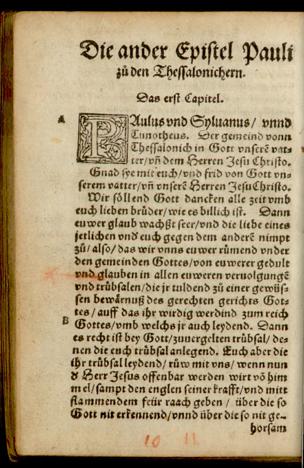 Die ander Epistel Pauli
zů den Thessalonichern.
Das erst Capitel.
A
PAulus vnd Syluanus/ vnnd
Timotheus. Der gemeind vonn
Thessalonich in Gott vnserē vat-
ter/ vn̄ dem Herren Jesu Christo.
Gnad sye mit euch/ vnd frid von Gott vn-
serem vatter/ vn̄ vnserē Herren Jesu Christo.
Wir söllend Gott dancken alle zeit vmb
euch lieben brüder/ wie es billich ist. Dann
euwer glaub wachßt seer/ vnd die liebe eines
jetlichen vnd euch gegen dem anderē nimpt
zů/ also/ das wir vnns euwer rümend vnder
den gemeinden Gottes/ von euwerer gedult
vnd glauben in allen euweren veruolgungē
vnd trübsalen/ die jr tuldend zů einer gewüs-
sen bewärnuß des gerechten gerichts Got-
tes/ auff das ihr wirdig werdind zum reich
B
Gottes/ vmb welchs jr auch leydend. Dann
es recht ist bey Gott/ zuuergelten trübsal/ de-
nen die euch trübsal anlegend. Euch aber die
ihr trübsal leydend/ růw mit vns/ wenn nun
d Herr Jesus offenbar werden wirt võ him
mel/ sampt den englen seiner krafft/ vnd mitt
flammendem feür raach geben/ über die so
Gott nit erkennend/ vnnd über die so nit ge-
horsam
10 11